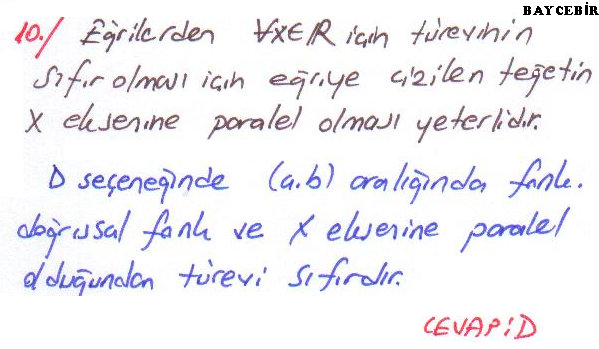 BAYCEBİR
10./ Eğrilerden ∀x∈R için türevinin
sıfır olması için eğriye çizilen teğetin
X eksenine paralel olması yeterlidir.
D seçeneğinde (a.b) aralığında fonk.
doğrusal fonk ve X eksenine paralel
olduğundan türevi sıfırdır.
CEVAP:D